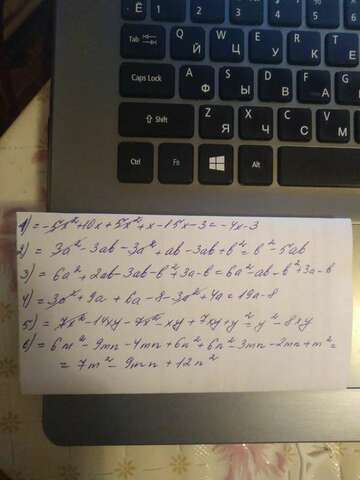 Ё ! 1 @ 2 " # 3 № $ 4 ; % 5 ^ 6
Tab Q Й W Ц E У R К T Е
Caps Lock A Ф S Ы D В F А
Shift Z Я X Ч C С V М
Ctrl Fn Alt
1) = -5x²+10x+5x²+x-15x-3=-4x-3
2) = 3a²-3ab-3a²+ab-3ab+b²=b²-5ab
3) = 6a²+2ab-3ab-b²+3a-b=6a²-ab-b²+3a-b
4) = 3a²+9a+6a-8-3a²+4a=19a-8
5) = 7x²-14xy-7x²-xy+7xy+y²=y²-8xy
6) = 6m²-9mn-4mn+6n²+6n²-3mn-2mn+m²=
= 7m²-9mn+12n²